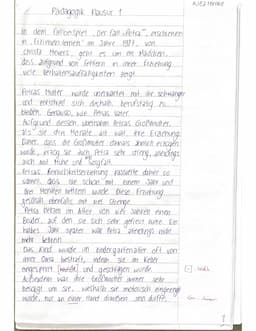 Pädagogik Klausur 1
In dem Fallbeispiel „Der Fall Petra", erschienen
im Jahre 1977, von
Christa Meves, geht es um ein Mädchen,
dass aufgrund von Fehlern in ihrer Erziehung
viele Verhaltensauffälligkeiten zeigt.
Petras Mutter wurde unerwartet mit ihr schwanger
und entschied sich deshalb, berufstätig zu
bleiben. Genauso, wie Petras Vater.
Aufgrund dessen, übernahm Petras Großmutter,
als sie drei Monate alt war, ihre Erziehung.
Daher, dass die Großmutter damals ähnlich erzogen
wurde, erzog sie auch Petra sehr streng, allerdings
auch mit Mühe und Sorgfalt.
Petras Reinlichkeitserziehung klappte daher so
schnell, dass sie schon mit einem Jahr und
drei Monaten
geschah ebenfalls mit viel Strenge.
Petra bekam im Alter von vier Jahren einen
Bruder, auf den sie sich sehr gefreut hatte. Ein
halbes Jahr später war Petra allerdings nicht
mehr
Das Kind wurde im Kindergartenalter oft von
ihrer Oma bestraft, indem sie im Keller
eingesperrt wurde und geschlagen wurde.
Außerdem war ihre Großmutter immer sehr
besorgt um sie, weshalb sie motorisch eingeengt
wurde, nur an einer Hand draußen sein durfte.
1